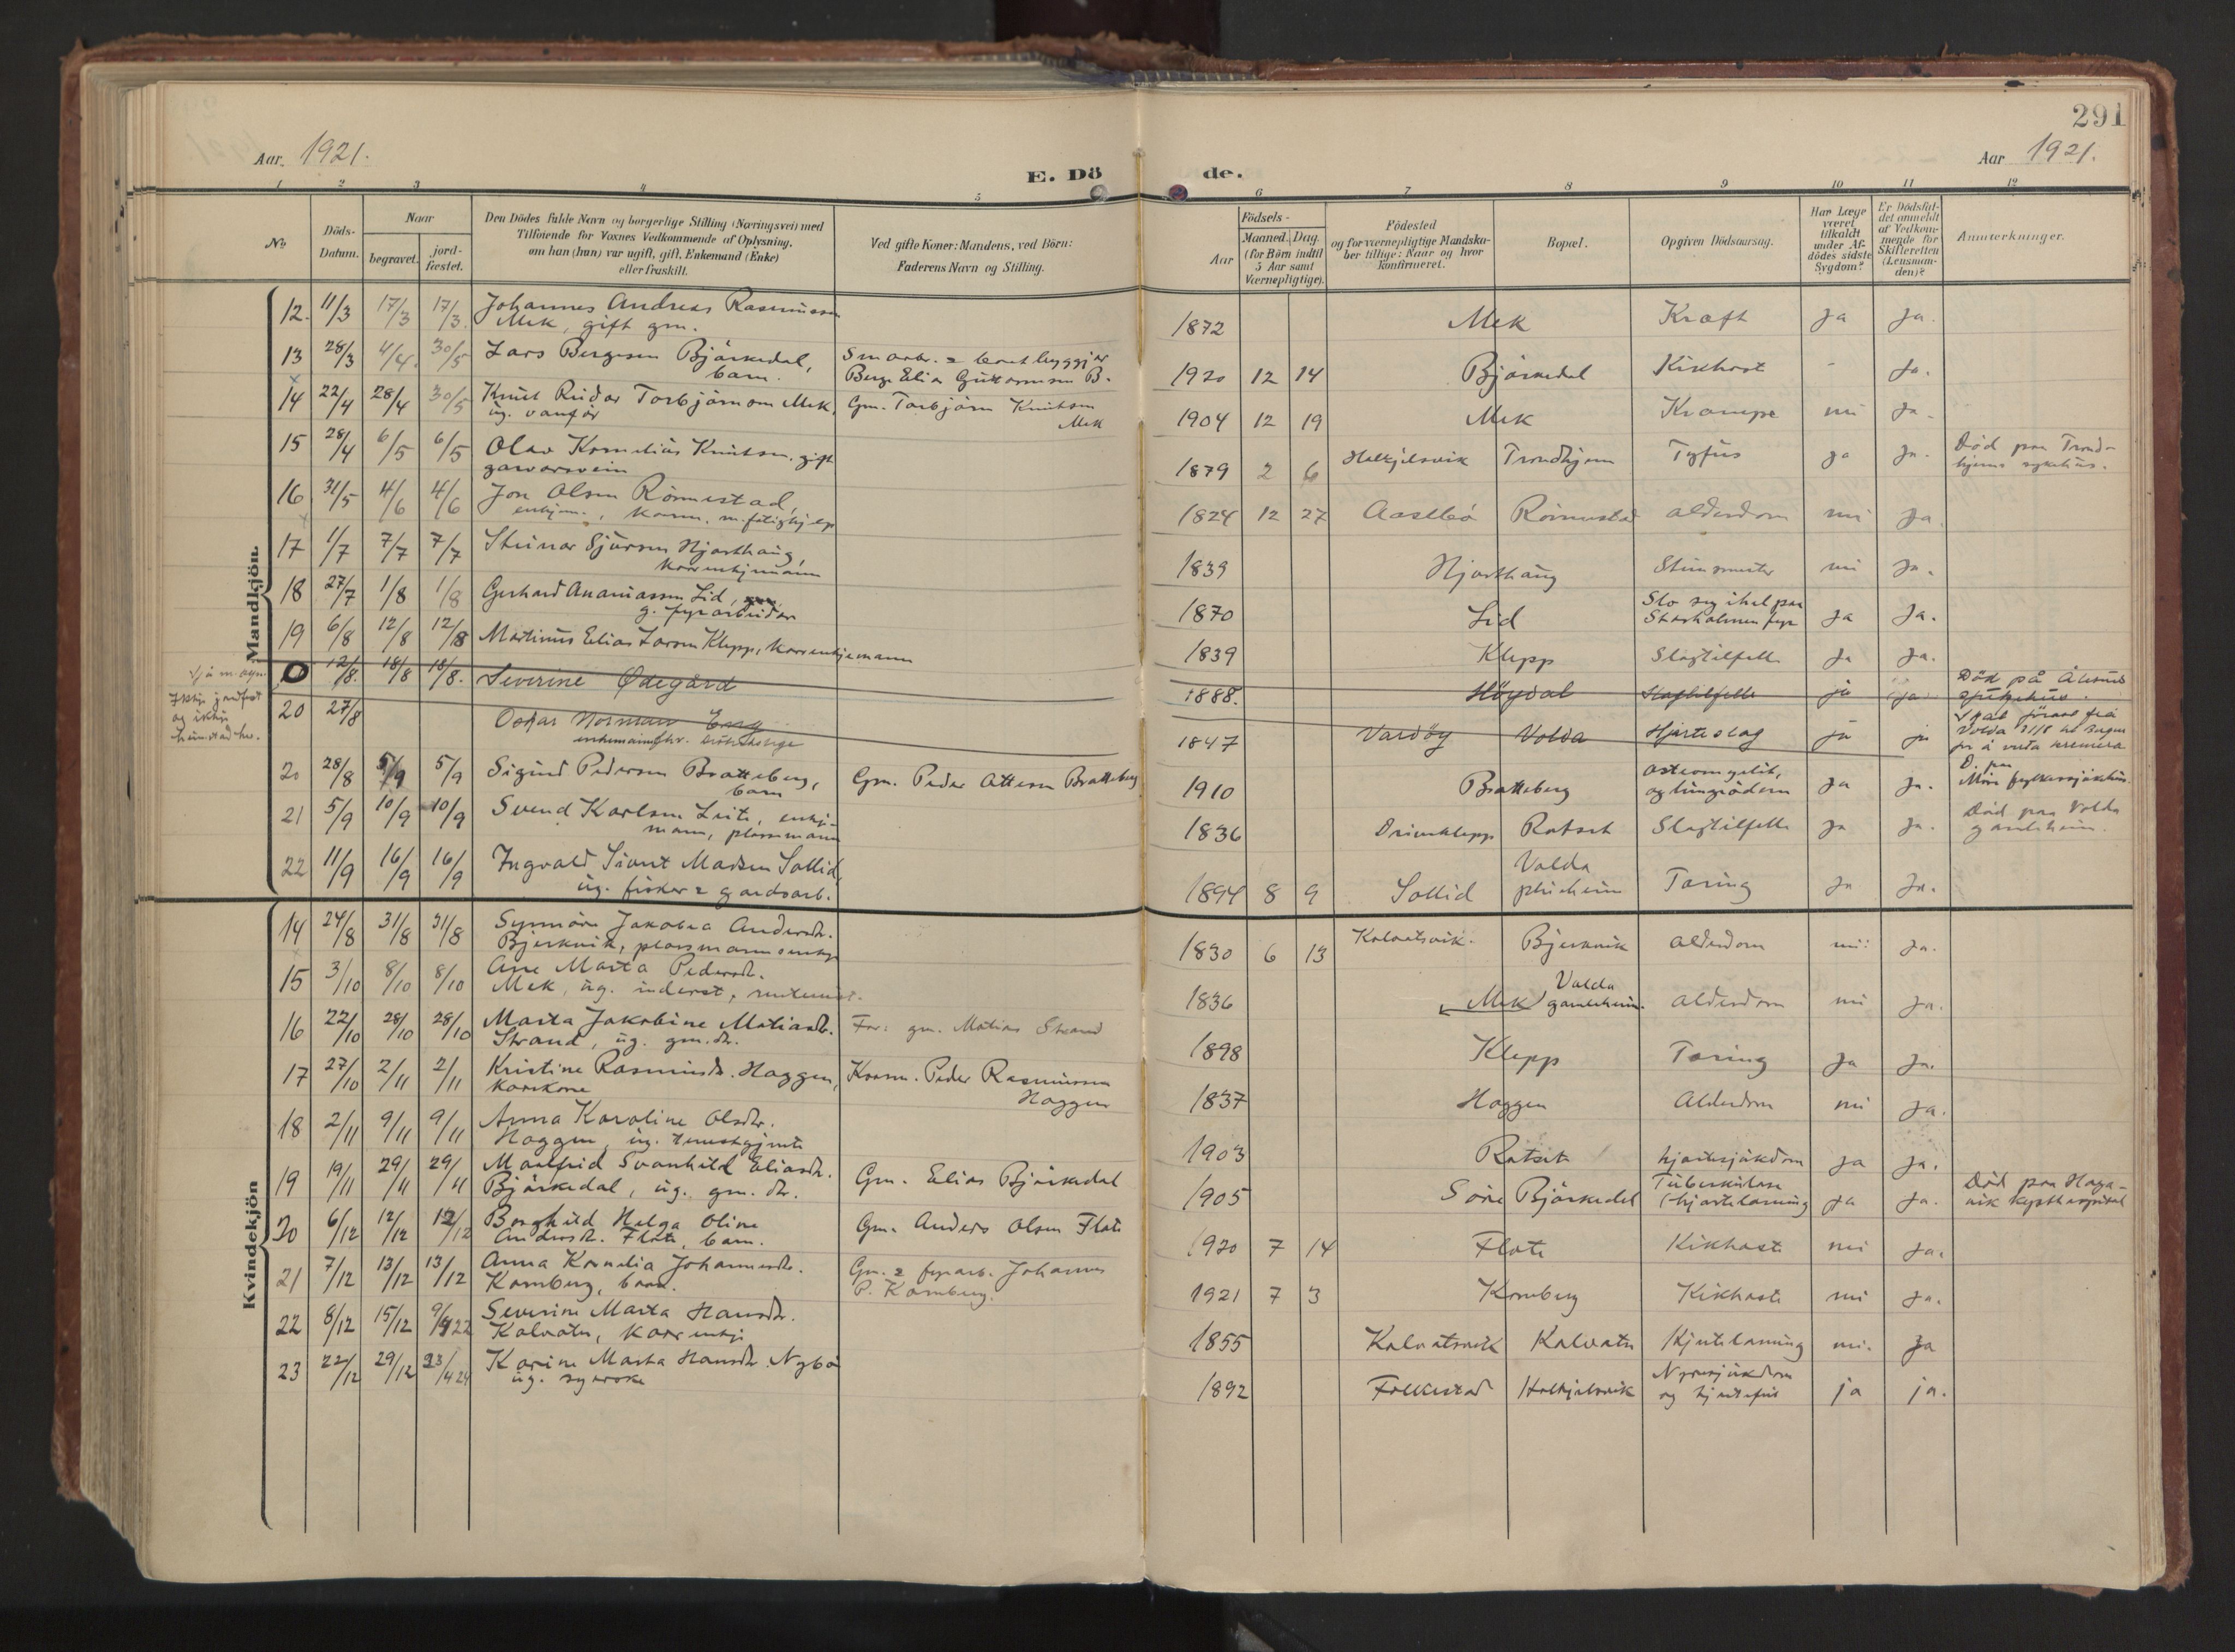 291
Aar 1921.
Aar 1921.
E. Dö de.
1 2 3 4 5 6 7 8 9 10 11 12
No
Döds-Datum.
Naar
begravet.
jord-fæstet.
Den Dödes fulde Navn og borgerlige Stilling (Næringsvei) med
Tilföiende for Voxnes Vedkommende af Oplysning,
om han (hun) var ugift, gift, Enkemand (Enke)
eller fraskilt.
Ved gifte Koner: Mandens, ved Börn:
Faderens Navn og Stilling.
Födsels-
Aar
Maaned. Dag.
(for Börn indtil
5 Aar samt
Værnepligtige).
Födested
og for værnepligtige Mandska-
ber tillige: Naar og hvor
konfirmeret.
Bopæl.
Opgiven Dödsaarsag.
Har Læge
været
tilkaldt
under Af-
dödes sidste
Sygdom?
Er Dödsfal-
det anmeldt
af Vedkom-
mende for
Skifteretten
(Lensman-
den)?
Anmærkninger.
Mandkjön.
12. 11/3 17/3 17/3. Johannes Andreas Rasmussen 1872 Mek Kræft Ja Ja.
Mek, gift gm.
13 28/3 4/4. 30/5 Lars Bergesen Bjørkedal, Smaabr. & baatbyggjer 1920 12 14 Bjørkedal Kikhost - Ja.
barn. Berge Elias Guttormsen B.
14 22/4 28/4 30/5 Knut Reidar Torbjørnson Mek, Gm. Torbjørn Knutson 1904 12 19 Mek Krampe nei Ja.
ug. vanfør Mek
15 28/4 6/5 6/5 Olav Kornelius Knutson, gift 1879 2 6 Halkjelsvik Trondhjem Tyfus Ja Ja. Død paa Trond-
garvarsvein hjems sykehus.
16 31/5 4/6 4/6 Jon Olsen Rønnestad, 1824 12 27 Aasebø Rønnestad alderdom nei Ja.
enkjem., m. fatighjelp
17 1/7 7/7 7/7 Steinar Sjursen Hjorthaug, 1839 Hjorthaug nei Ja.
kaarenkjemann
18 27/7 1/8 1/8 Gerhard Ananiassen Lid, 1870 Lid Slo seg ihel paa Ja Ja.
g. fyrarbeidar fyr
19 6/8 12/8 12/8 Martinus Elias Larsen Klepp, kaarenkjemann 1839 Klepp Slagtilfelle Ja Ja.
0 12/8. 18/8 18/8. Severine Ødegård 1888. Høydal Slagtilfelle ja (ja) Død på Ålesund
sjukehus.
Ikkje jordfest
og ikkje
20 27/8 Oskar Norman 1847 Vardøy Volda Hjarteslag ja ja
enkemann
Volda 31/8
for å verta kremera
20 28/8 5/9 5/9 Sigurd Pedersen Bratteberg, Gm. Peder Ottesen Bratteberg 1910 Bratteberg osteomyelit, Ja Ja. D. paa
barn og lungeødem Møre fylkessjukehus
21 5/9 10/9 10/9 Svend Karlsen Leite, enkj- 1836 Driveklepp Rotset Slagtilfelle Ja Ja. Død paa Volda
mann, plassmann gamleheim.
22 11/9 16/9 16/9 Ingvald Sivert Madsen Sollid, 1894 8 9 Sollid Volda pleieheim Tæring Ja Ja.
ug. fisker & gardsarb.
Kvindekjön
14 24/8 31/8 31/8 Synnøve Jakobea Andersdr. 1830 6 13 Kalvatsvik. Bjerkvik alderdom nei Ja.
Bjerkvik, plassmannsenkje
15 3/10 8/10 8/10 Ane Marta Pedersdr. 1836 Mek Volda gamleheim. alderdom nei Ja.
Mek, ug. inderst,
16 22/10 28/10 28/10 Marta Jakobine Matiasdr. Far: gm. Matias Strand 1898 Klepp Tæring Ja Ja.
Strand, ug. gm.dr.
17 27/10 2/11 2/11 Kristine Rasmusdr. Haggen, Kaarm. Peder Rasmussen 1837 Haggen Alderdom nei Ja.
kaarkone Haggen
18 2/11 9/11 9/11 Anna Karoline Olsdr. 1903 Rotset hjartesjukdom Ja Ja.
Haggen, ug. tenestgjente
19 19/11 29/11 29/11 Maalfrid Svanhild Eliasdr. Gm. Elias Bjørkedal 1905 Søre Bjørkedal Tuberkulose Ja Ja. Død paa Haga-
Bjørkedal, ug. gm. dr. (hjartelaming vik kysthospital
20 6/12 12/12 12/12 Borghild Helga Oline Gm. Anders Olsen Flote 1920 7 14 Flote Kikhoste nei Ja.
Andersdr. Flote, barn.
21 7/12 13/12 13/12 Anna Kornelia Johannesdr. Gm. & fyrarb. Johannes 1921 7 3 Kornberg Kikhoste nei Ja.
Kornberg, barn. P. Kornberg.
22 8/12 15/12 9/4 22 Severine Marta Hansdr. 1855 Kalvatsvik Kalvatn Hjartelaming nei. Ja
Kalvatn, kaarenkje
23 22/12 29/12 23/4 24 Karine Marta Hansdr. Nybø 1892 Folkestad Halkjelsvik Nyresjukdom ja ja.
ug. syerske og hjartefeil